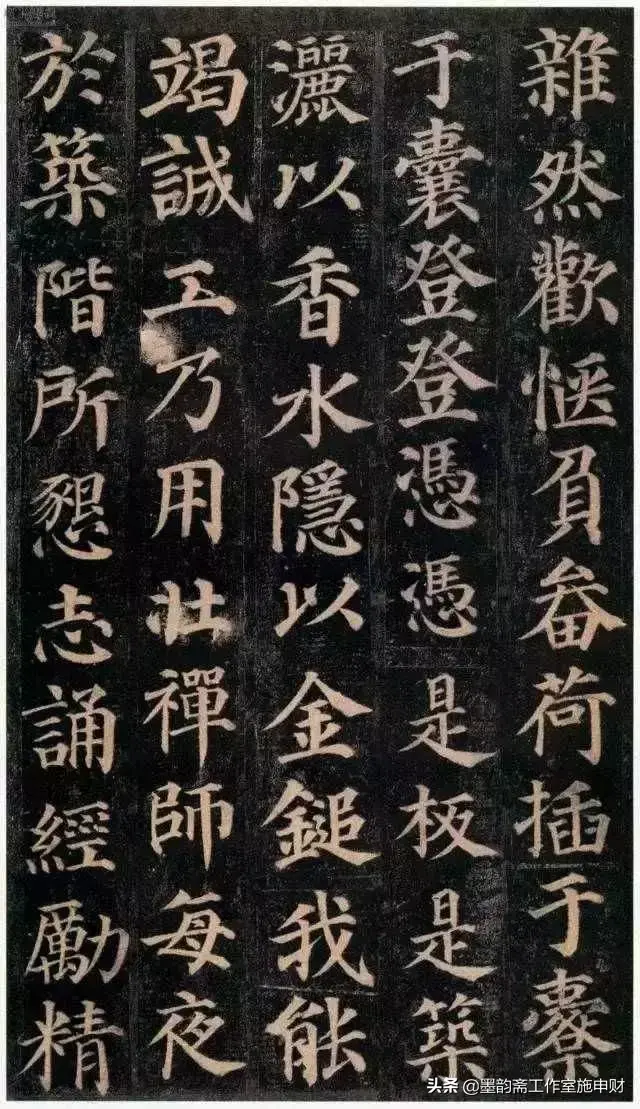 雜然歡愜負畚荷插于橐
于囊登登憑憑是板是築
灑以香水隱以金鎚我能
竭誠工乃用壯禪師每夜
於築階所懇志誦經勵精
头条 @墨韵斋工作室施申财